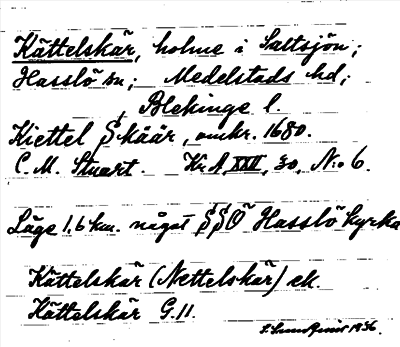 Kättelskär, holme i Saltsjön;
Hasslö sn; Medelstads hd;
Blekinge l.
Kiettel Skäär, omkr. 1680.
C. M. Stuart. Kr. A. XXII, 30, N:o 6.
Läge 1,6 km. något SSO Hasslö kyrka
Kättelskär (Nettelskär) ek.
Kättelskär G.11.
1936.